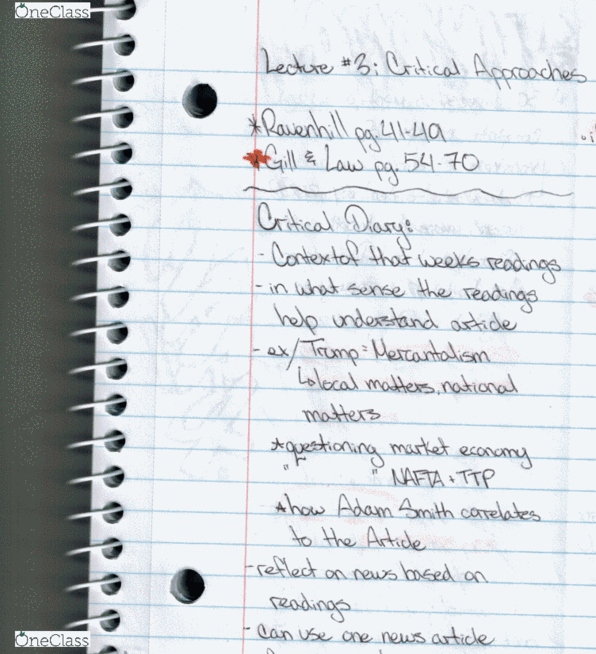 OneClass
Lecture #3: Critical Approaches
*Ravenhill pg. 41-49
*Gill & Law pg. 54-70
Critical Diary:
- Context of that weeks readings
- in what sense the readings
help understand article
- ex/ Trump = Mercantalism
↳ local matters, national
matters
*questioning market economy
" " NAFTA + TTP
*how Adam Smith correlates
to the Article
- reflect on news based on
readings
- can use one news article
OneClass